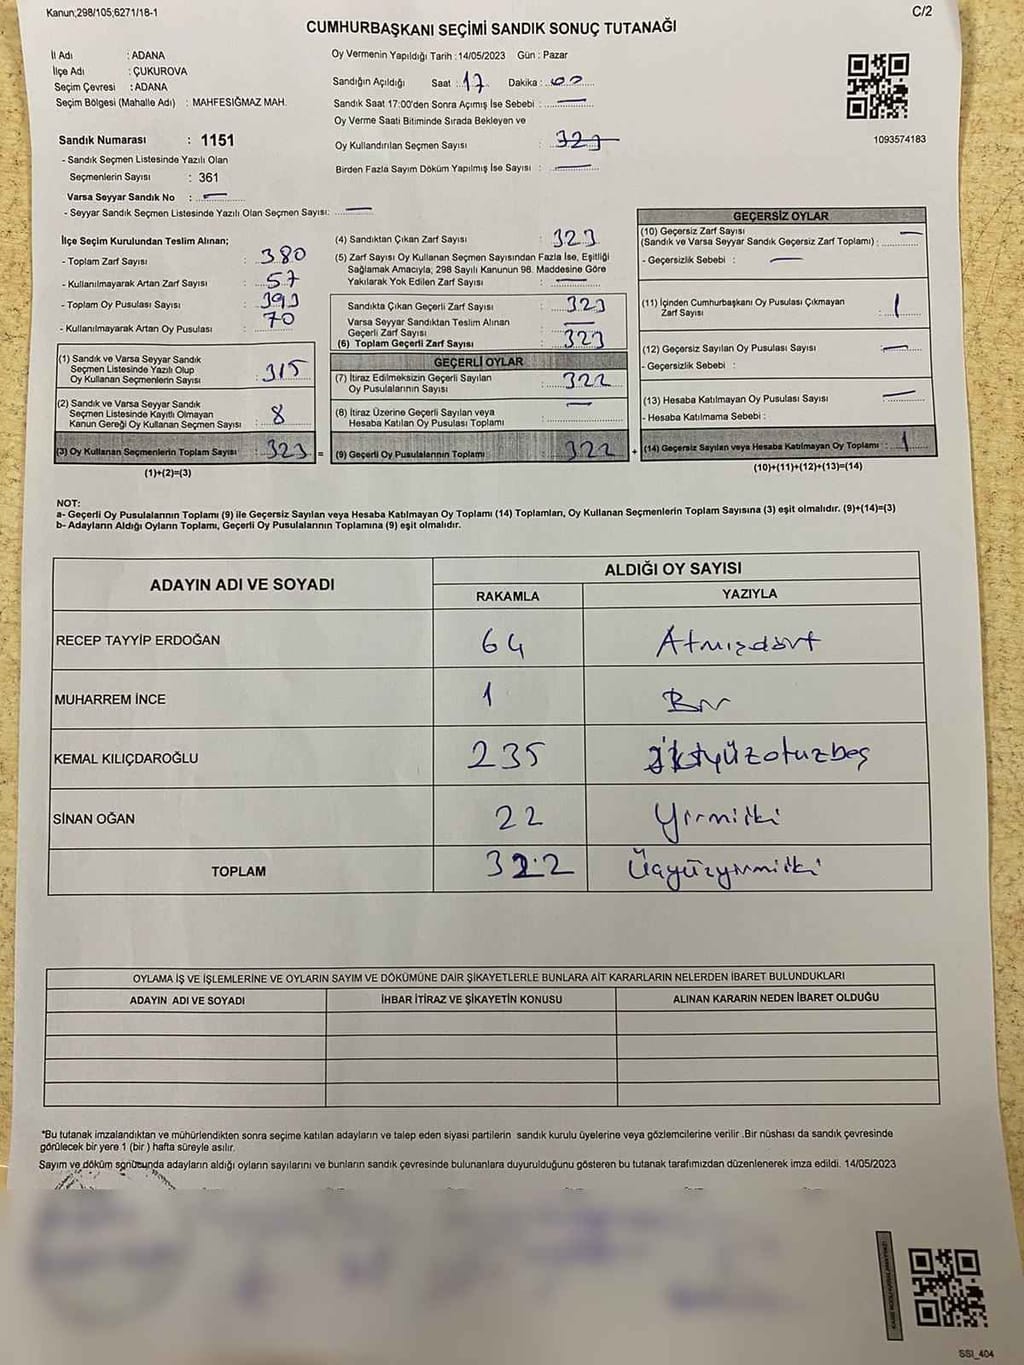 Kanun;298/105;6271/18-1
C/2
CUMHURBAŞKANI SEÇİMİ SANDIK SONUÇ TUTANAĞI
İl Adı : ADANA
İlçe Adı : ÇUKUROVA
Seçim Çevresi : ADANA
Seçim Bölgesi (Mahalle Adı) : MAHFESIĞMAZ MAH.
Oy Vermenin Yapıldığı Tarih : 14/05/2023 Gün : Pazar
Sandığın Açıldığı Saat : 17 Dakika : 00
Sandık Saat 17:00'den Sonra Açımış İse Sebebi : —
Oy Verme Saati Bitiminde Sırada Bekleyen ve
Oy Kullandırılan Seçmen Sayısı : 323
Birden Fazla Sayım Döküm Yapılmış İse Sayısı : —
1093574183
Sandık Numarası : 1151
- Sandık Seçmen Listesinde Yazılı Olan
Seçmenlerin Sayısı : 361
Varsa Seyyar Sandık No : —
- Seyyar Sandık Seçmen Listesinde Yazılı Olan Seçmen Sayısı: —
İlçe Seçim Kurulundan Teslim Alınan;
- Toplam Zarf Sayısı : 380
- Kullanılmayarak Artan Zarf Sayısı : 57
- Toplam Oy Pusulası Sayısı : 393
- Kullanılmayarak Artan Oy Pusulası : 70
(1) Sandık ve Varsa Seyyar Sandık
Seçmen Listesinde Yazılı Olup
Oy Kullanan Seçmenlerin Sayısı : 315
(2) Sandık ve Varsa Seyyar Sandık
Seçmen Listesinde Kayıtlı Olmayan
Kanun Gereği Oy Kullanan Seçmen Sayısı : 8
(3) Oy Kullanan Seçmenlerin Toplam Sayısı : 323 =
(1)+(2)=(3)
(4) Sandıktan Çıkan Zarf Sayısı : 323
(5) Zarf Sayısı Oy Kullanan Seçmen Sayısından Fazla İse, Eşitliği
Sağlamak Amacıyla; 298 Sayılı Kanunun 98. Maddesine Göre
Yakılarak Yok Edilen Zarf Sayısı : —
Sandıkta Çıkan Geçerli Zarf Sayısı : 323
Varsa Seyyar Sandıktan Teslim Alınan
Geçerli Zarf Sayısı —
(6) Toplam Geçerli Zarf Sayısı : 323
GEÇERLİ OYLAR
(7) İtiraz Edilmeksizin Geçerli Sayılan
Oy Pusulalarının Sayısı : 322
(8) İtiraz Üzerine Geçerli Sayılan veya
Hesaba Katılan Oy Pusulası Toplamı : —
(9) Geçerli Oy Pusulalarının Toplamı : 322 +
GEÇERSİZ OYLAR
(10) Geçersiz Zarf Sayısı
(Sandık ve Varsa Seyyar Sandık Geçersiz Zarf Toplamı) : —
- Geçersizlik Sebebi : —
(11) İçinden Cumhurbaşkanı Oy Pusulası Çıkmayan
Zarf Sayısı : 1
(12) Geçersiz Sayılan Oy Pusulası Sayısı : —
- Geçersizlik Sebebi :
(13) Hesaba Katılmayan Oy Pusulası Sayısı : —
- Hesaba Katılmama Sebebi :
(14) Geçersiz Sayılan veya Hesaba Katılmayan Oy Toplamı : 1
(10)+(11)+(12)+(13)=(14)
NOT:
a- Geçerli Oy Pusulalarının Toplamı (9) ile Geçersiz Sayılan veya Hesaba Katılmayan Oy Toplamı (14) Toplamları, Oy Kullanan Seçmenlerin Toplam Sayısına (3) eşit olmalıdır. (9)+(14)=(3)
b- Adayların Aldığı Oyların Toplamı, Geçerli Oy Pusulalarının Toplamına (9) eşit olmalıdır.
ADAYIN ADI VE SOYADI
ALDIĞI OY SAYISI
RAKAMLA YAZIYLA
RECEP TAYYİP ERDOĞAN 64 Atmışdört
MUHARREM İNCE 1 Bir
KEMAL KILIÇDAROĞLU 235 ikiyüzotuzbeş
SİNAN OĞAN 22 Yirmiiki
TOPLAM 322 Üçyüzyirmiiki
OYLAMA İŞ VE İŞLEMLERİNE VE OYLARIN SAYIM VE DÖKÜMÜNE DAİR ŞİKAYETLERLE BUNLARA AİT KARARLARIN NELERDEN İBARET BULUNDUKLARI
ADAYIN ADI VE SOYADI İHBAR İTİRAZ VE ŞİKAYETİN KONUSU ALINAN KARARIN NEDEN İBARET OLDUĞU
*Bu tutanak imzalandıktan ve mühürlendikten sonra seçime katılan adayların ve talep eden siyasi partilerin sandık kurulu üyelerine veya gözlemcilerine verilir .Bir nüshası da sandık çevresinde
görülecek bir yere 1 (bir ) hafta süreyle asılır.
Sayım ve döküm sonucunda adayların aldığı oyların sayılarını ve bunların sandık çevresinde bulunanlara duyurulduğunu gösteren bu tutanak tarafımızdan düzenlenerek imza edildi. 14/05/2023
SSI_404